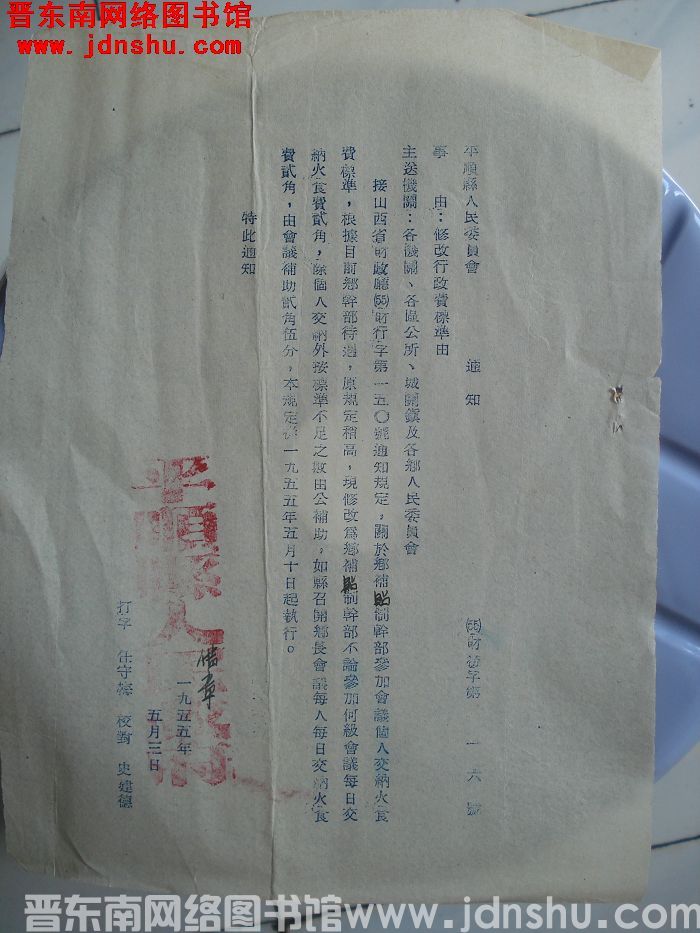 晋东南网络图书馆
www.jdnshu.com
平順縣人民委員會 通知 (55)財行字第一六號
事 由：修改行政費標準由
主送機關：各機關、各區公所、城關鎮及各鄉人民委員會
接山西省財政廳(55)財行字第一五〇號通知規定，關於鄉補貼制幹部參加會議個人交納火食
費標準，根據目前鄉幹部待遇，原規定稍高，現修改爲鄉補貼制幹部不論參加何級會議每日交
納火食費貳角，除個人交納外按標準不足之數由公補助，如縣召開鄉長會議每人每日交納火食
費貳角，由會議補助貳角伍分，本規定從一九五五年五月十日起執行。
特此通知
平順縣人民政府
借章
一九五五年
五月三日
打字 任守 校對 史建德
晋东南网络图书馆 www.jdnshu.com